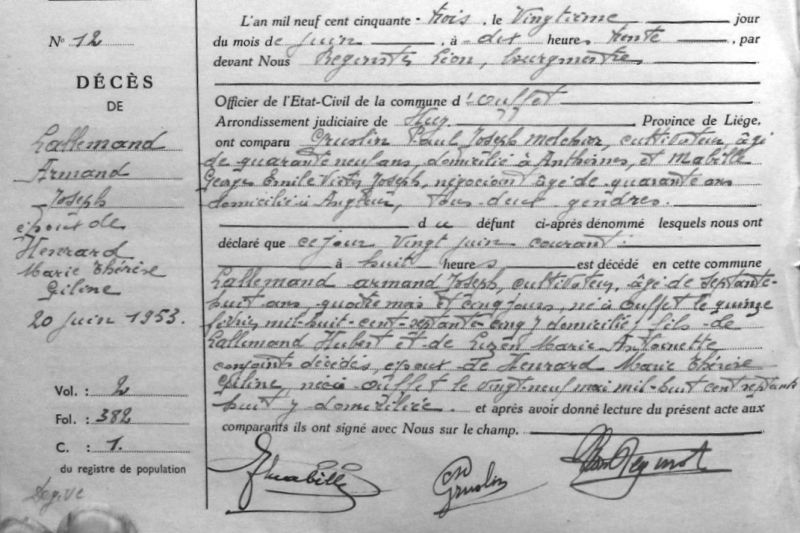 N° 12
DÉCÈS
DE
Lallemand
Armand
Joseph
époux de
Henrard
Marie Thérèse
Giline
20 juin 1953.
Vol. : 2
Fol. : 382
C. : 1.
du registre de population
L'an mil neuf cent cinquante-trois, le vingtième jour
du mois de juin, à dix heures trente, par
devant Nous Léon, bourgmestre
Officier de l'Etat-Civil de la commune d'Ouffet
Arrondissement judiciaire de Huy Province de Liége,
ont comparu Gruslin Paul Joseph Melchior, cultivateur, âgé
de quarante neuf ans, domicilié à Anthisnes, et Mabille
Georges Emile Victor Joseph, négociant âgé de quarante ans
domicilié à Angleur, tous deux gendres.
du défunt ci-après dénommé lesquels nous ont
déclaré que ce jour vingt juin courant :
à huit heures est décédé en cette commune
Lallemand Armand Joseph, cultivateur, âgé de septante-
huit ans, quatre mois et cinq jours, né à Ouffet le quinze
février mil-huit-cent-septante-cinq y domicilié, fils de
Lallemand Hubert et de Marie Antoinette
conjoints décédés, époux de Henrard Marie Thérèse
Giline, née à Ouffet le vingt-neuf mai mil-huit cent septante
huit y domiciliée. et après avoir donné lecture du présent acte aux
comparants ils ont signé avec Nous sur le champ.
Mabille
Gruslin